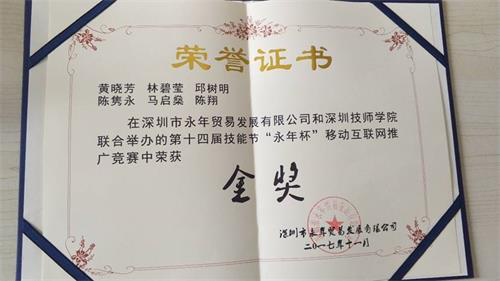 荣誉证书
黄晓芳 林碧莹 邱树明
陈隽永 马启燊 陈翔
在深圳市永年贸易发展有限公司和深圳技师学院
联合举办的第十四届技能节“永年杯”移动互联网推
广竞赛中荣获
金奖
深圳市永年贸易发展有限公司
二〇一七年十一月